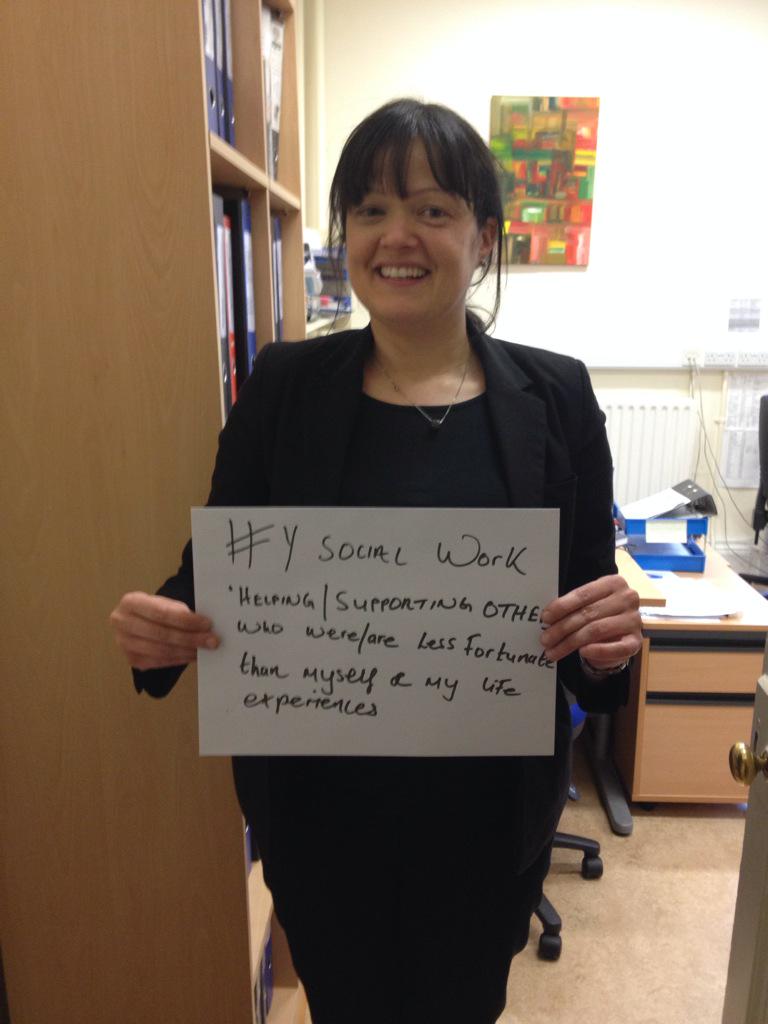 #Y SOCIAL WORK
'HELPING/SUPPORTING OTHE
who were/are less fortunate
than myself & my life
experiences